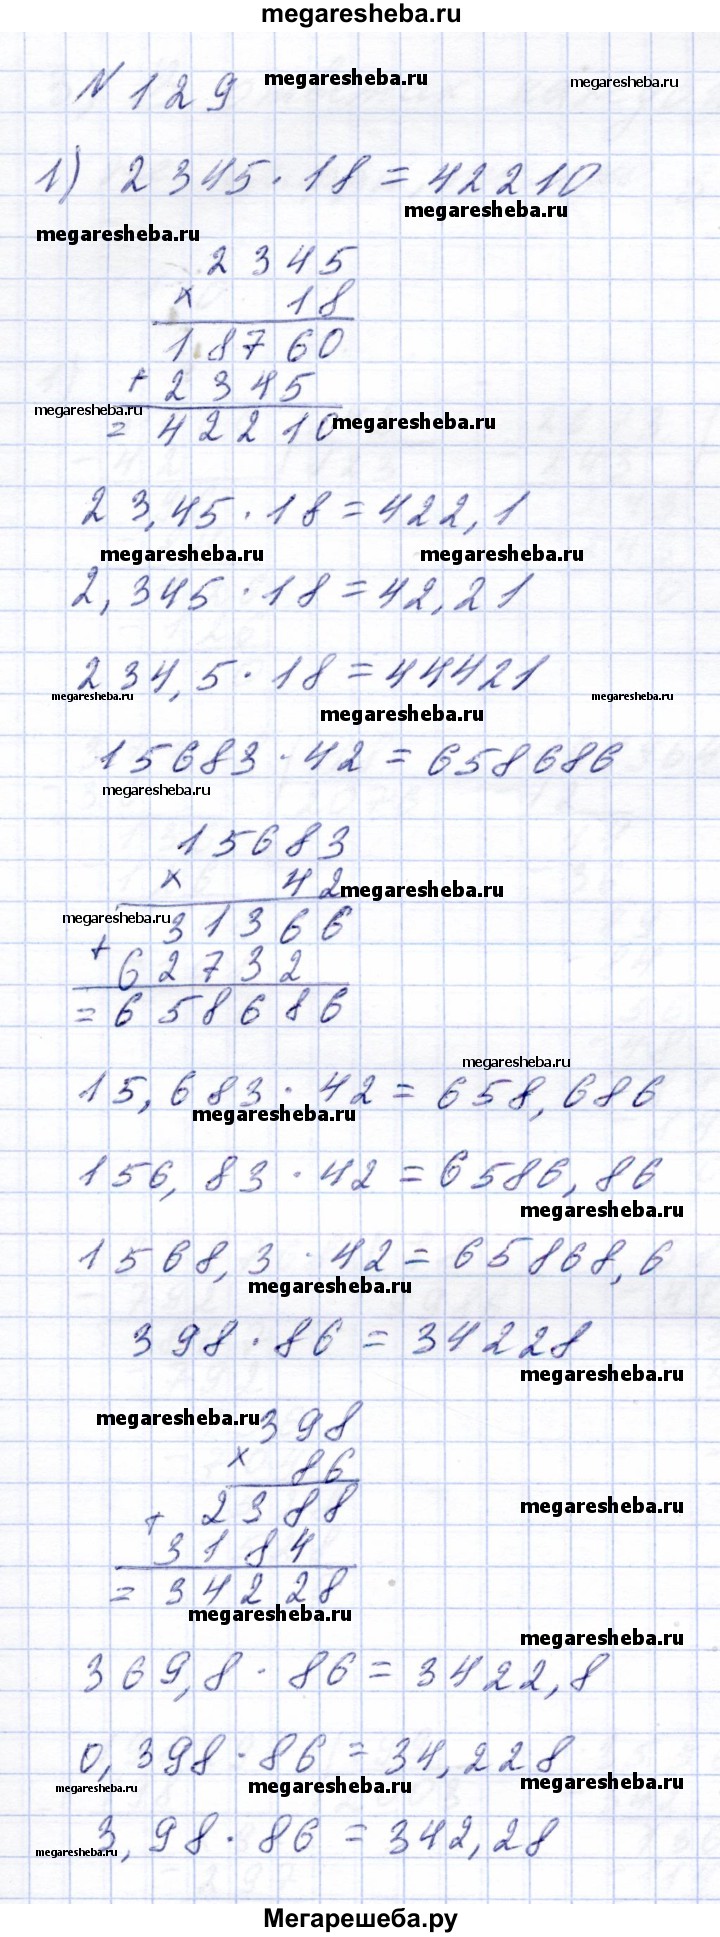 megaresheba.ru
№129 megaresheba.ru megaresheba.ru
1) 2345·18=42210
megaresheba.ru
megaresheba.ru
2345
× 18
18760
+2345
megaresheba.ru
=42210 megaresheba.ru
23,45·18=422,1
megaresheba.ru megaresheba.ru
2,345·18=42,21
234,5·18=44421
megaresheba.ru megaresheba.ru
megaresheba.ru
15683·42=658686
megaresheba.ru
15683
× 42 megaresheba.ru
megaresheba.ru 31366
+62732
=658686
megaresheba.ru
15,683·42=658,686
megaresheba.ru
156,83·42=6586,86
megaresheba.ru
1568,3·42=65868,6
megaresheba.ru
398·86=34228
megaresheba.ru
megaresheba.ru 398
× 86
+2388 megaresheba.ru
3184
=34228
megaresheba.ru
megaresheba.ru
369,8·86=3422,8
0,398·86=34,228
megaresheba.ru megaresheba.ru megaresheba.ru
3,98·86=342,28
megaresheba.ru
Мегарешеба.ру